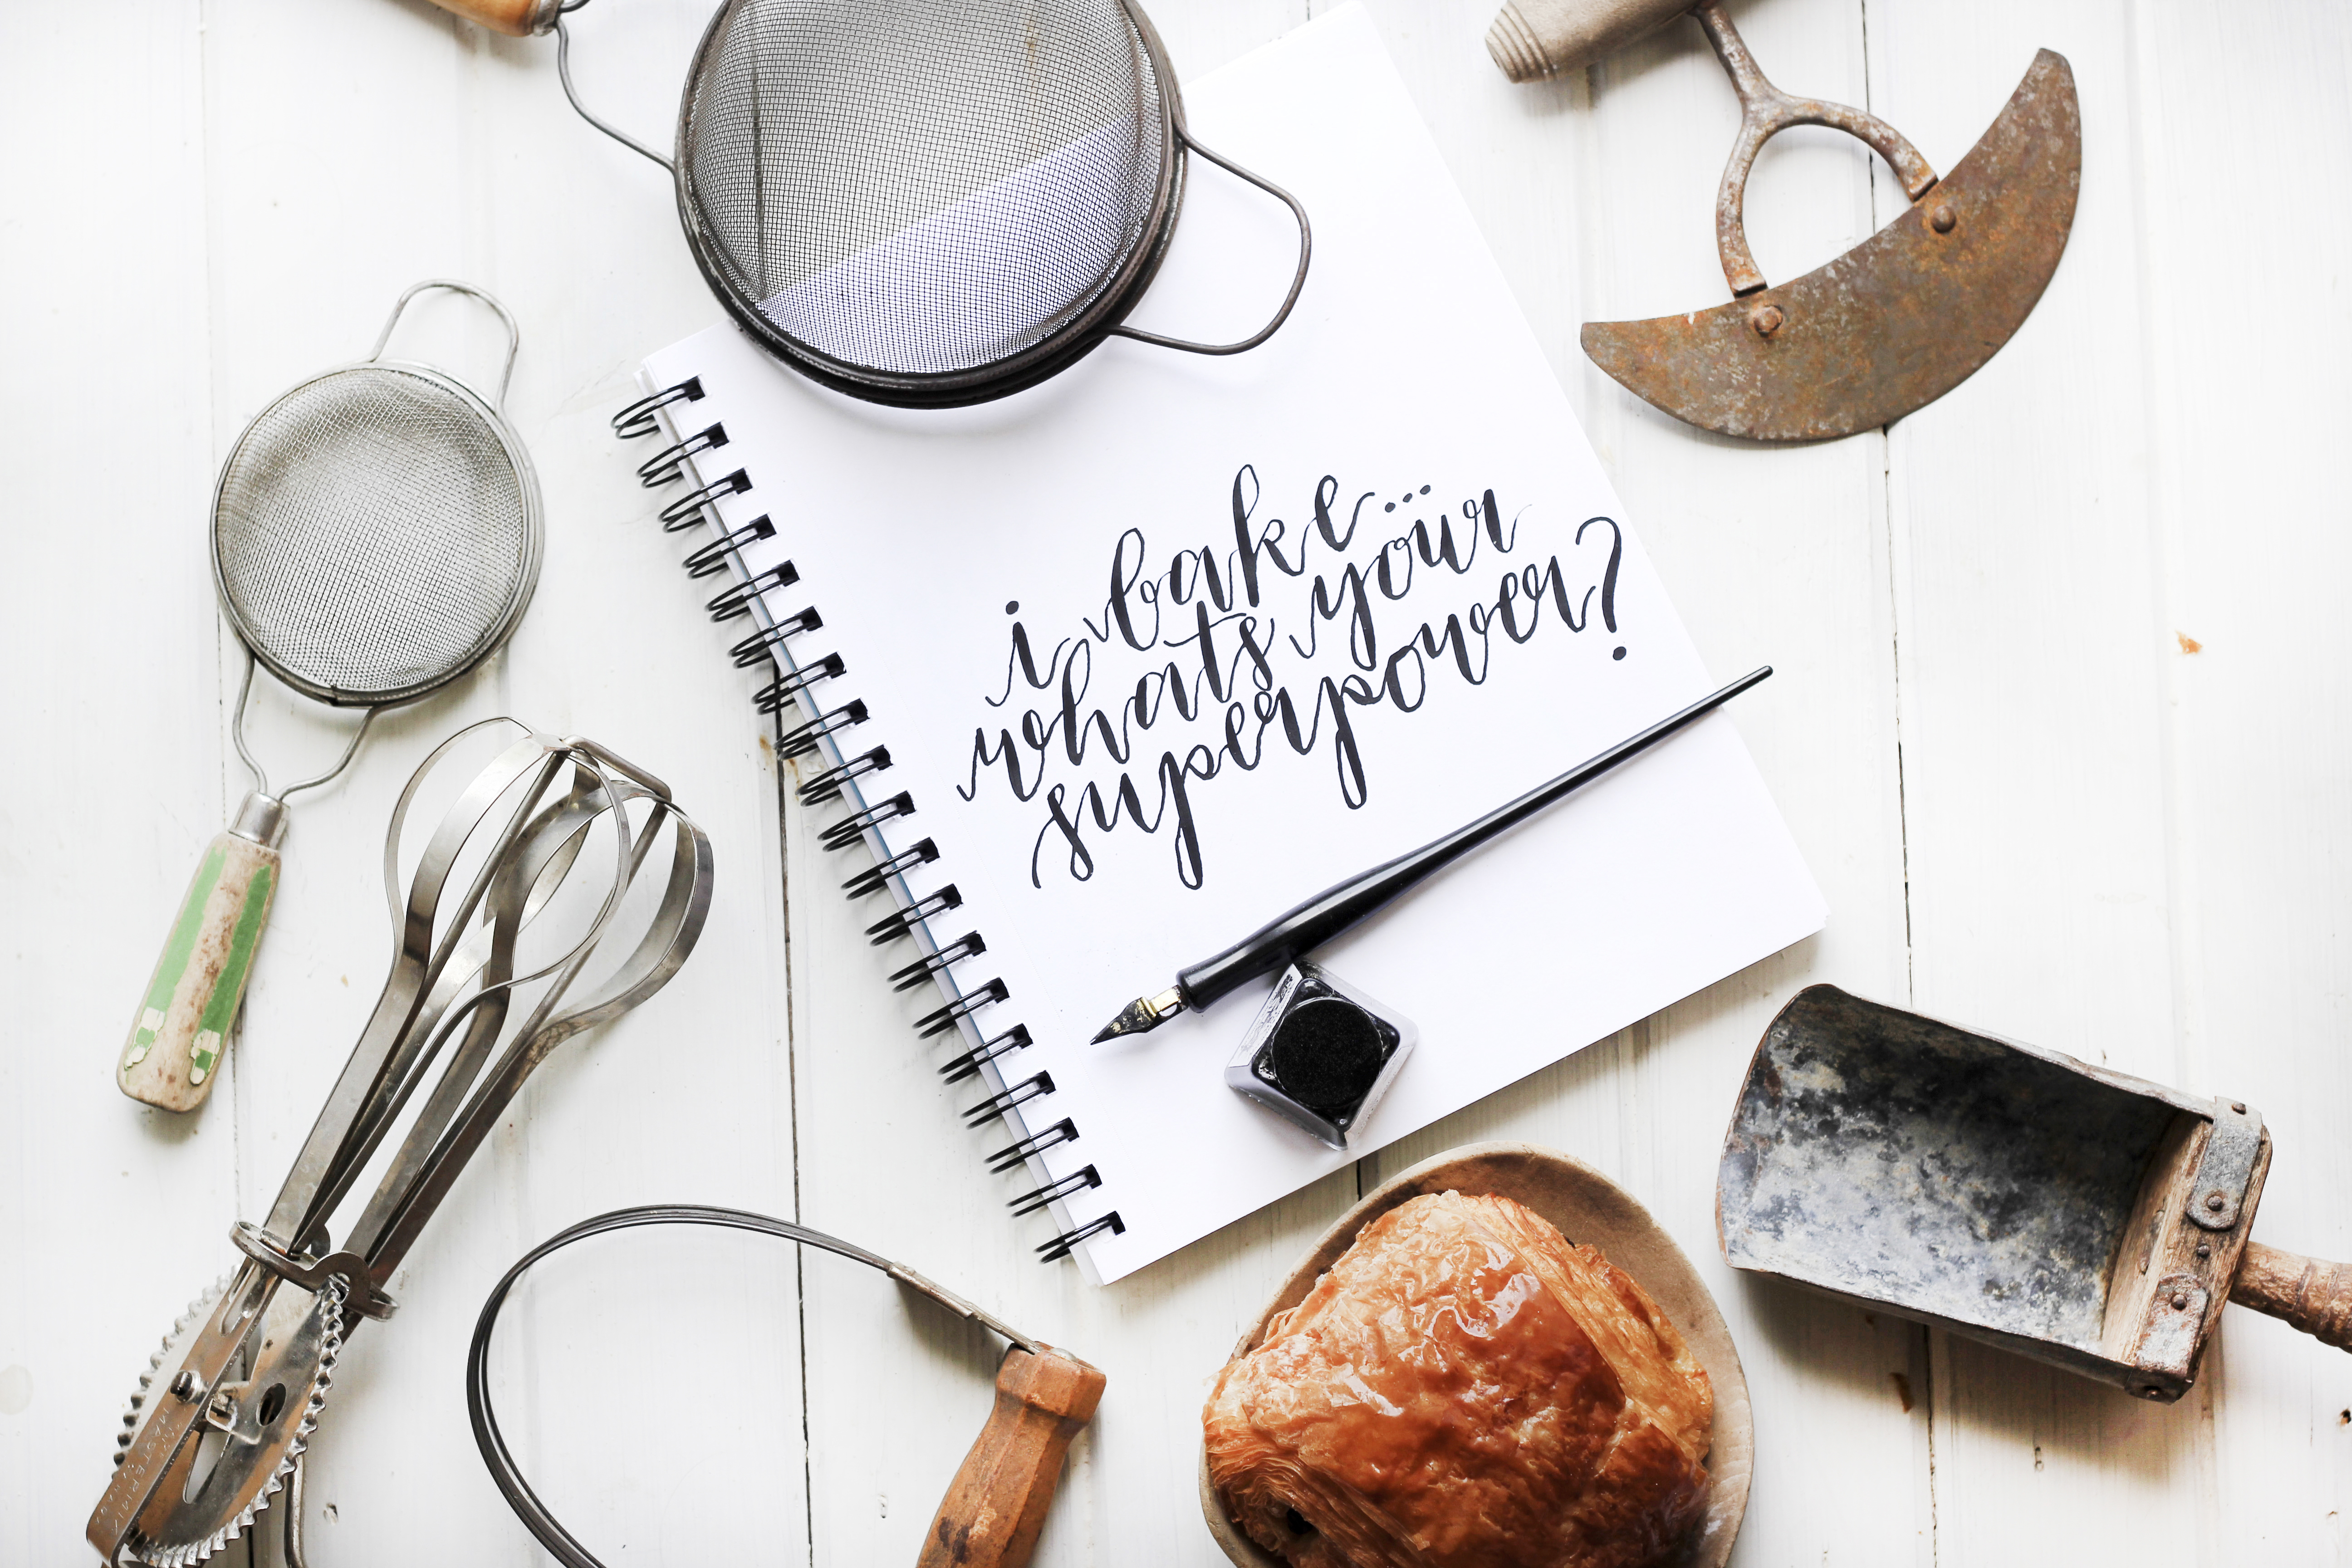 i bake...
whats your
superpower?